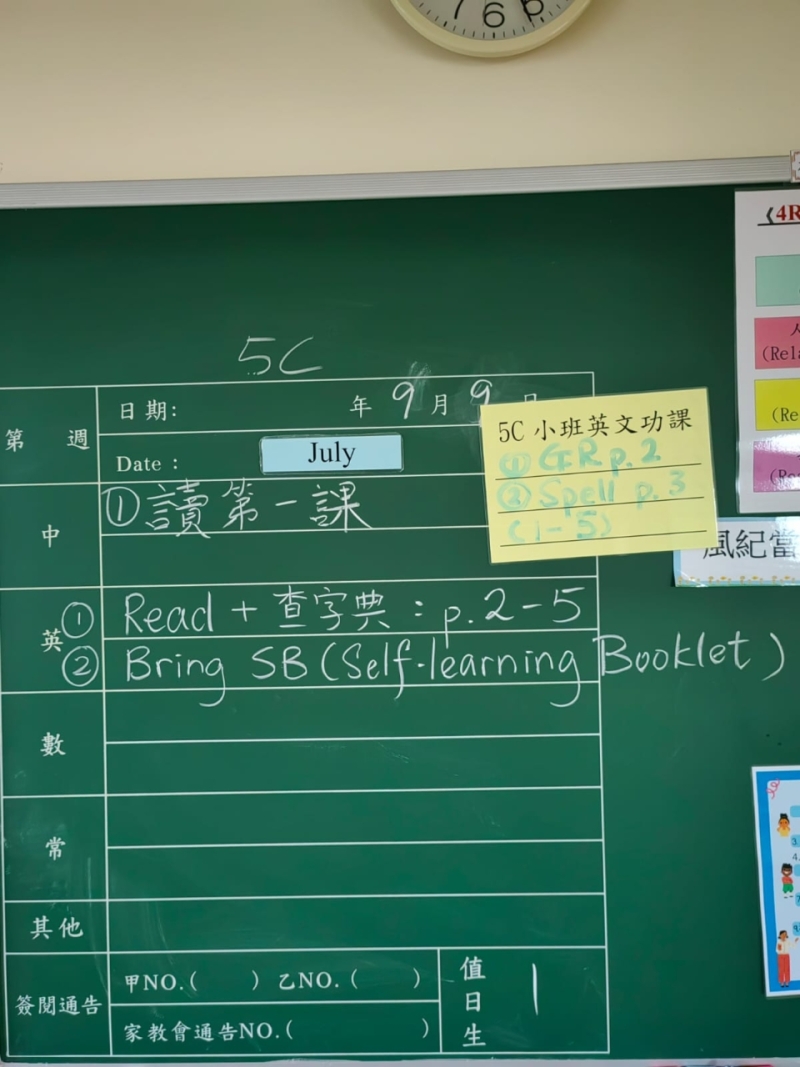 7 6 5
5C
第 週
日期: 年 9 月 9
Date :
July
5C 小班英文功課
① GE R p.2
② Spell p.3
(1-5)
《4R
(Rela
(Re
風紀當
中
① 讀第一課
英
① Read + 查字典 : p.2-5
② Bring SB (Self-learning Booklet)
數
常
其他
簽閱通告
甲NO.( ) 乙NO.( )
家教會通告NO.( )
值日生
1